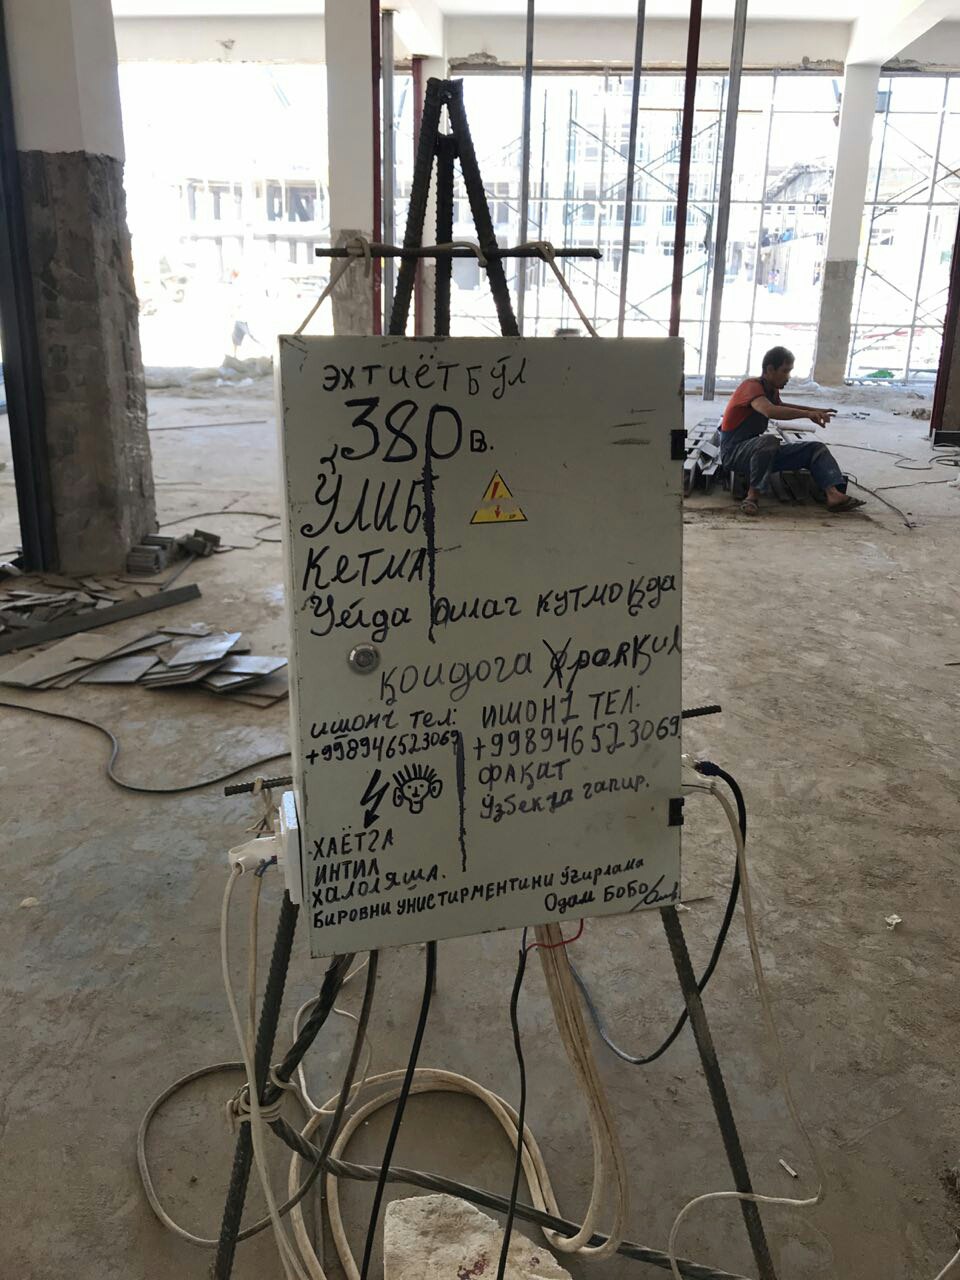 эхтиёт бўл
380 в.
ўлиб
кетма
Уйда оилаг кутмоқда
қоидога
ишонч тел:
+998946523069
ИШОН1 ТЕЛ:
+998946523069
фақат
ўзбекча гапир.
ХАЁТГА
ИНТИЛ
ХАЛОЛЯША.
БИРОВНИ УНИСТИРМЕНТИНИ ўғирлама
Одам БОБО